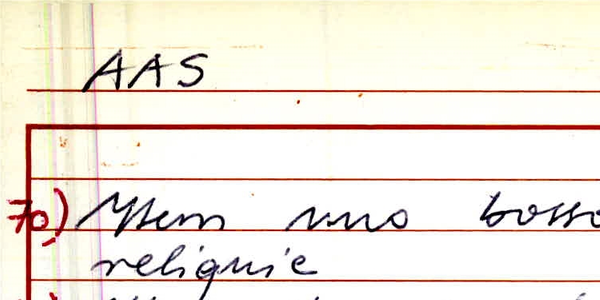 AAS
70) Ittem uno bosso
reliquie